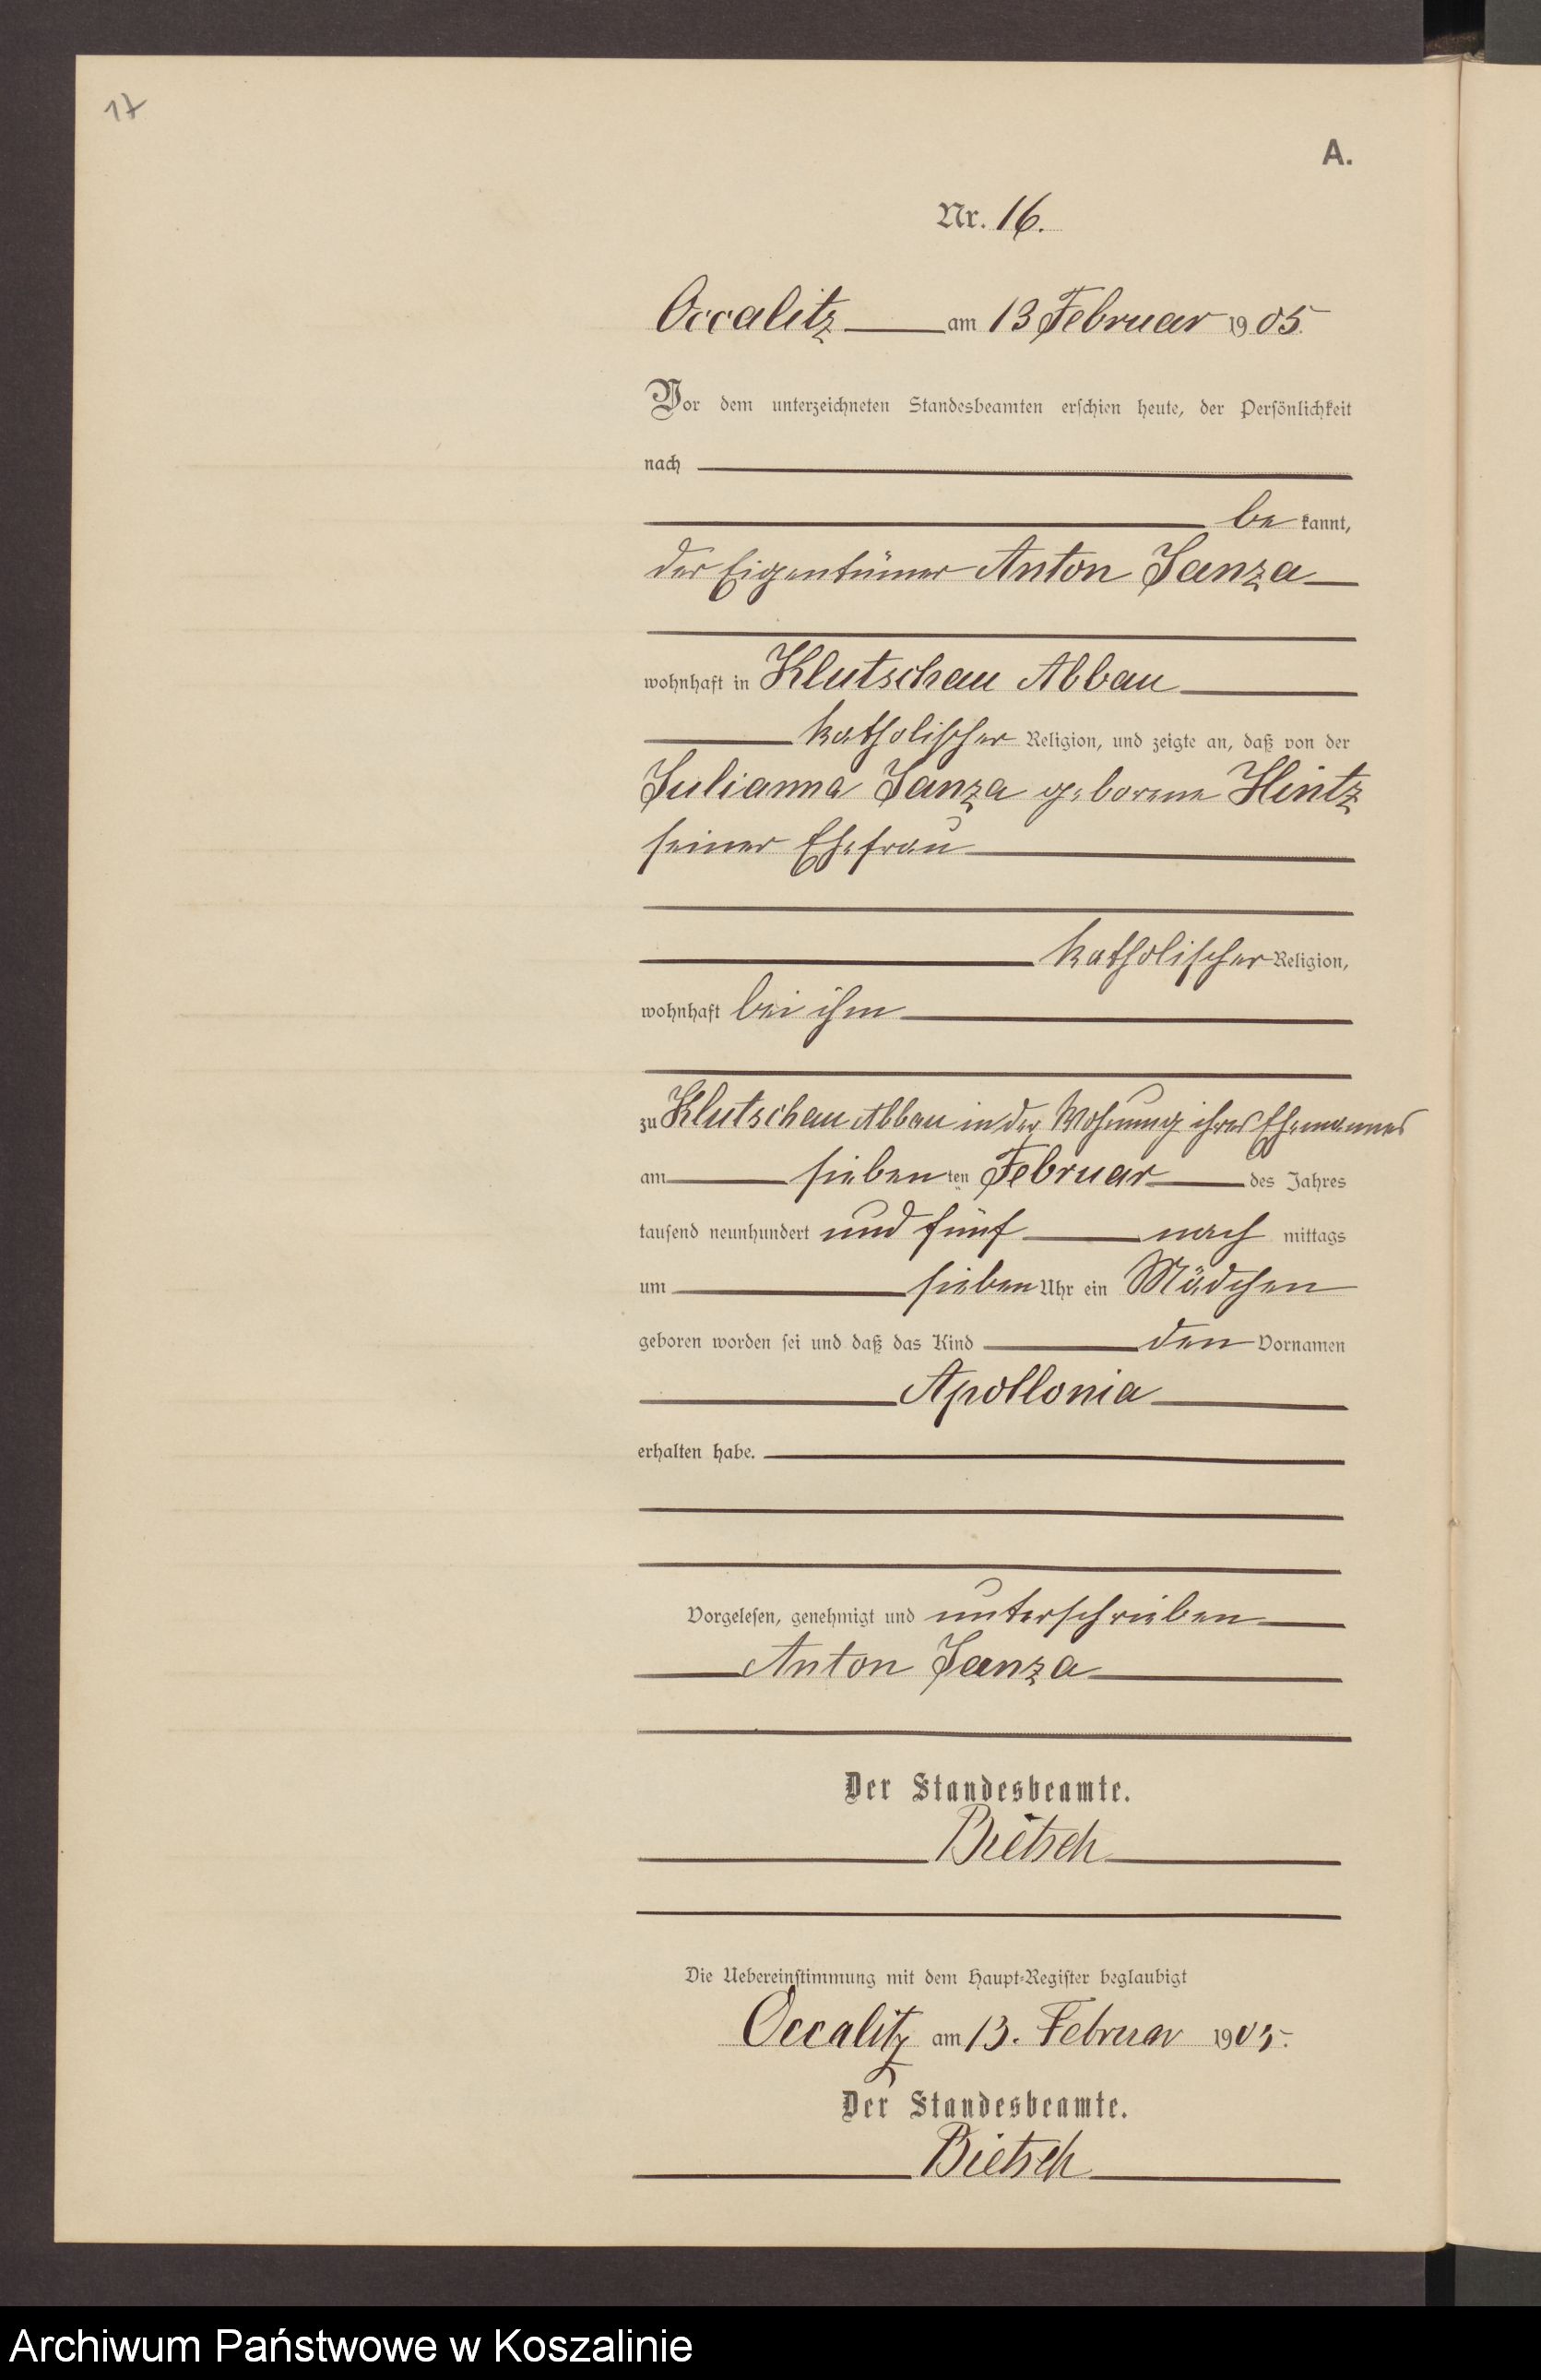 17
A.
Nr. 16.
Occalitz am 13 Februar 1905.
Vor dem unterzeichneten Standesbeamten erschien heute, der Persönlichkeit
nach
bekannt,
der Eigentümer Anton Janza
wohnhaft in Klutschau Abbau
katholischer Religion, und zeigte an, daß von der
Julianna Janza geborene Hintz
seiner Ehefrau
katholischer Religion,
wohnhaft bei ihm
zu Klutschau Abbau in der Wohnung ihres Ehemannes
am siebenten Februar des Jahres
tausend neunhundert und fünf nachmittags
um sieben Uhr ein Mädchen
geboren worden sei und daß das Kind den Vornamen
Apollonia
erhalten habe.
Vorgelesen, genehmigt und unterschrieben
Anton Janza
Der Standesbeamte.
Bietsch
Die Uebereinstimmung mit dem Haupt-Register beglaubigt
Occalitz am 13. Februar 1905.
Der Standesbeamte.
Bietsch
Archiwum Państwowe w Koszalinie